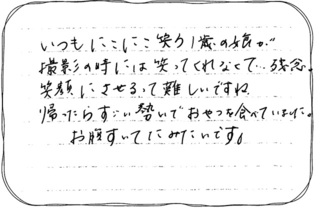 いつもにこにこ笑う1歳の娘が
撮影の時には笑ってくれなくて…残念。
笑顔にさせるって難しいですね
帰ったらすごい勢いでおやつを食べていました。
お腹すいてたみたいです。